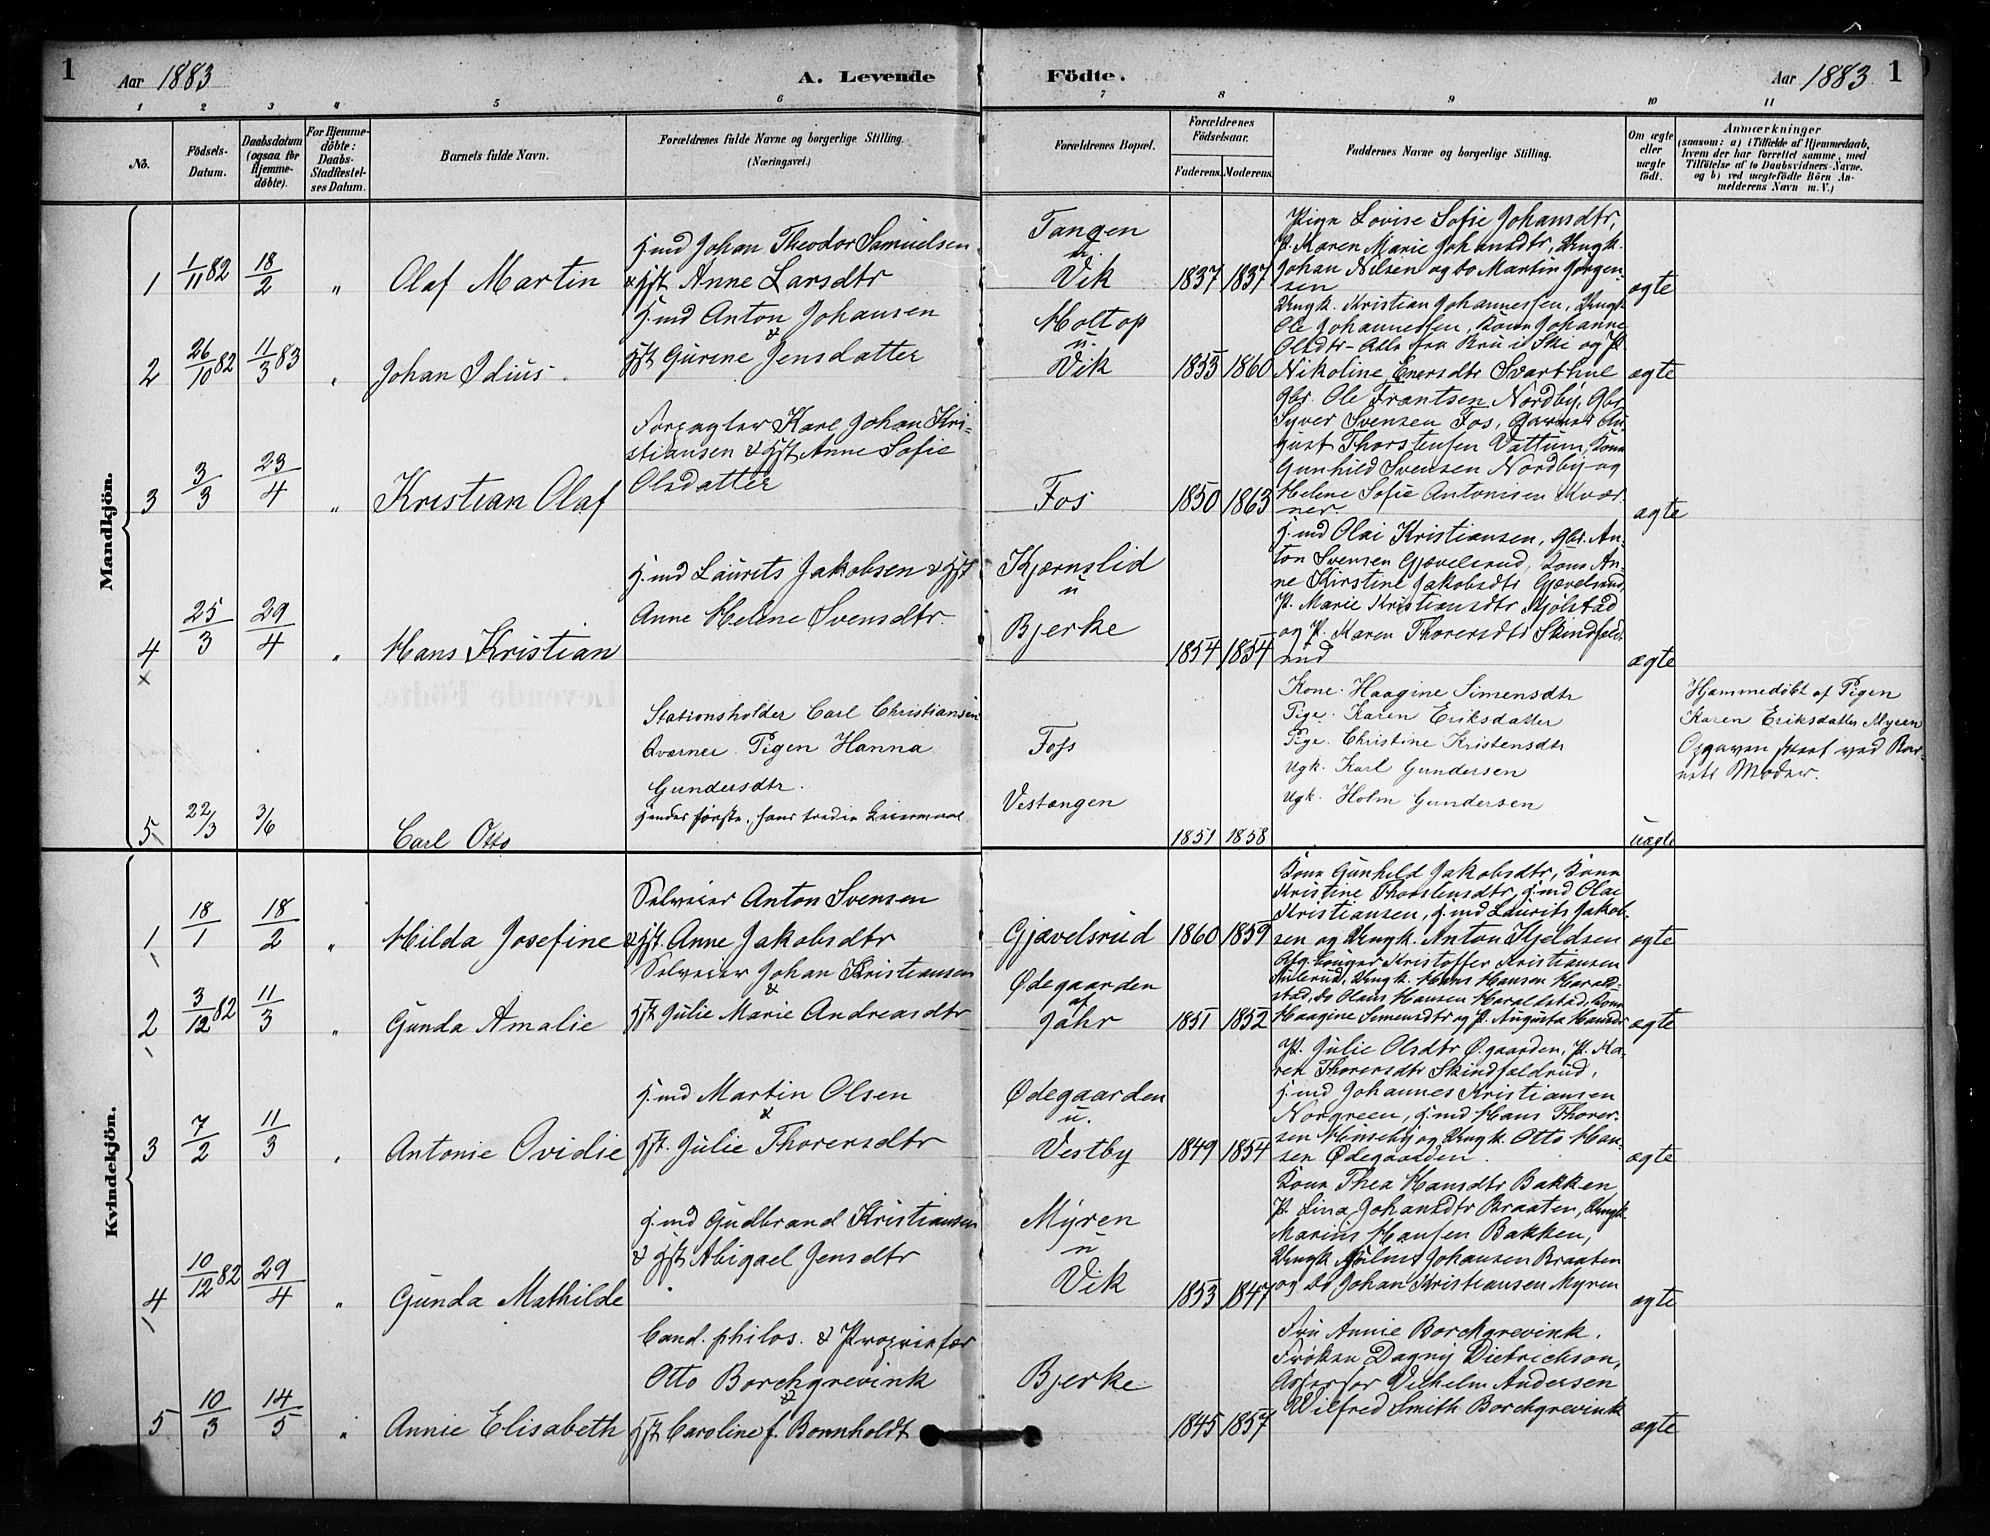 1
Aar 1883
A. Levende
Födte.
Aar 1883
1
1 2 3 4 5 6 7 8 9 10 11
No.
Födsels-
Datum.
Daabsdatum
(ogsaa for
Hjemme-
döbte).
For Hjemme-
döbte:
Daabs-
Stadfæstel-
ses Datum.
Barnets fulde Navn.
Forældrenes fulde Navne og borgerlige Stilling.
(Næringsvei.)
Forældrenes Bopæl.
Forældrenes
Födselsaar.
Faderens. Moderens.
Faddernes Navne og borgerlige Stilling.
Om ægte
eller
uægte
födt.
Anmærkninger
(saasom: a) i Tilfælde af Hjemmedaab,
hvem der har forrettet samme, med
Tilföielse af to Daabsvidners Navne.
og b) ved uægtefödte Börn An-
melderens Navn m. V.)
Mandkjön.
1 1/11 82 18/2 " Olaf Martin
H.md Johan Theodor Samuelsen
& Hst Anne Larsdtr
Tangen
u
Vik
1837 1837
Pige Lovise Sofie Johansdtr,
P. Karen Marie Johansdtr, Ungk.
Johan Nilsen og do Martin Jørgen-
sen
ægte
2 26/10 82 11/3 83 " Johan Idius
H.md Anton Johansen
&
Hst Gurine Jensdatter
Holtop
u.
Vik
1853 1860
Ungk. Kristian Johannessen, Ungk
Ole Johannessen, Kone Johanne
Olsdtr - Alle fra Kru i Ski og P.
Nikoline Enersdtr Svarthul
ægte
3 3/3 23/4 " Kristian Olaf
Forpagter Karl Johan Kri-
stiansen & Hst Anne Sofie
Olsdatter
Fos
1850 1863
Gbr. Ole Frantsen Nordby, Gbr
Syver Svensen Fos, Garver Au-
gust Thorstensen Vattum, Kone
Gunhild Svensen Nordby og
Helene Sofie Antonisen Kvær-
ner.
ægte
4 25/3 29/4 " Hans Kristian
x
H.md Laurits Jakobsen & Hst
Anne Helene Svensdtr.
Kjernslid
u
Bjerke
1854 1854
H.md Olai Kristiansen, Gbr. An-
ton Svensen Gjævelsrud, Kone An-
ne Kirstine Jakobsdtr Gjævelsrud,
P. Marie Kristiansdtr Kjølstad
og P. Maren Thorersdtr Skindfeld-
rud
ægte
5 22/3 3/6 Carl Otto
Stationsholder Carl Christiansen
Qværner. Pigen Hanna
Gundersdtr.
Hendes første, hans tredie Leiermaal.
Foss
Vestangen
1851 1858
Kone. Haagine Simensdtr
Pige. Karen Eriksdatter
Pige. Christine Kristensdtr
Ugk. Karl Gundersen
Ugk. Holm Gundersen
uægte
Hjemmedøbt af Pigen
Karen Eriksdatter Myren
Opgaven skeet ved Bar-
nets Moder.
Kvindekjön.
1 18/1 18/2 " Hilda Josefine
Selveier Anton Svensen
& Hst. Anne Jakobsdtr
Gjævelsrud
1860 1859
Kone Gunhild Jakobsdtr, Kone
Kristine Thorstensdtr, H.md Olai
Kristiansen, H.md Laurits Jakob-
sen og Ungk. Anton Kjeldsen
ægte
2 3/12 82 11/3 " Gunda Amalie
Selveier Johan Kristiansen
&
Hst Julie Marie Andreasdtr
Ødegaarden
af
Jahr
1851 1852
Kristoffer Kristiansen
Ungk. Hans Hansen Harald-
stad, do Olaus Hansen Haraldstad, Kone
Haagine Simensdtr og P. Augusta Hansdtr
ægte
3 7/2 11/3 " Antonie Ovidie
H.md Martin Olsen
&
Hst. Julie Thorersdtr
Ødegaarden
u.
Vestby
1849 1854
P. Julie Olsdtr Ø.gaarden, P. Ma-
ren Thorersdtr Skindfeldrud,
H.md Johannes Kristiansen
Norgreen, H.md Hans Thorer-
sen Hunseby og Ungk. Otto Han-
sen Ødegaarden.
ægte
4 10/12 82 29/4 " Gunda Mathilde
H.md Gudbrand Kristiansen
& Hst Abigael Jensdtr
Myren
u
Vik
1853 1847
Kone Thea Hansdtr Bakken
P. Lina Johansdtr Braaten, Ungk.
Marius Hansen Bakken,
Ungk. Julius Johansen Braaten
og do Johan Kristiansen Myren
ægte
5 10/3 14/5 " Annie Elisabeth
Cand. philos. & Proprietær
Otto Borchgrevink
&
Hst Caroline f. Bonnholdt
Bjerke
1845 1857
Fru Annie Borchgrevink,
Frøken Dagny Dietrichson,
Assessor Vilhelm Andersen
Wilfred Smith Borchgrevink
ægte